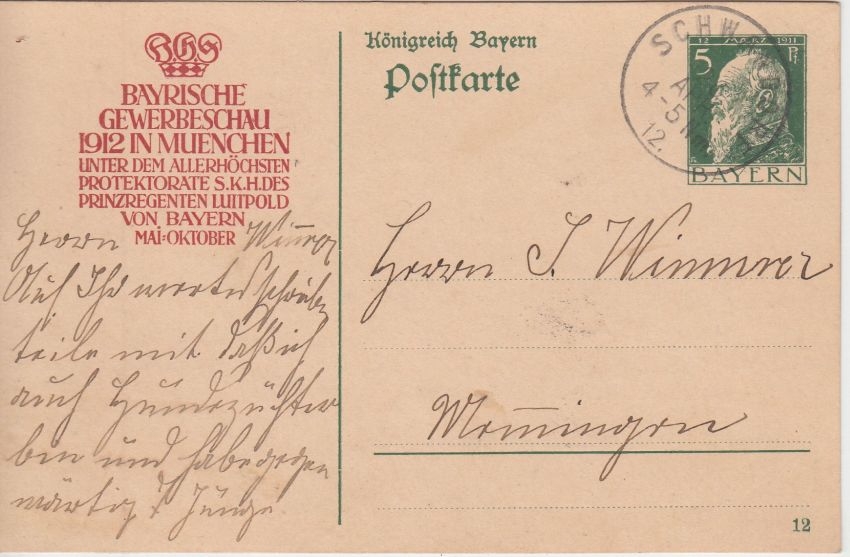 B.G.S
BAYRISCHE
GEWERBESCHAU
1912 IN MUENCHEN
UNTER DEM ALLERHÖCHSTEN
PROTEKTORATE S.K.H.DES
PRINZREGENTEN LUITPOLD
VON BAYERN
MAI-OKTOBER
Herrn Wimmer
Auf Ihr wertes schreiben
teile mit daß ich
auch Hundezüchter
bin und habe gegen
wärtig Junge
Königreich Bayern
Postkarte
12 MÄRZ 1911
5 Pf
BAYERN
SCHW
4-5
12.
Herrn J. Wimmer
Memmingen
12